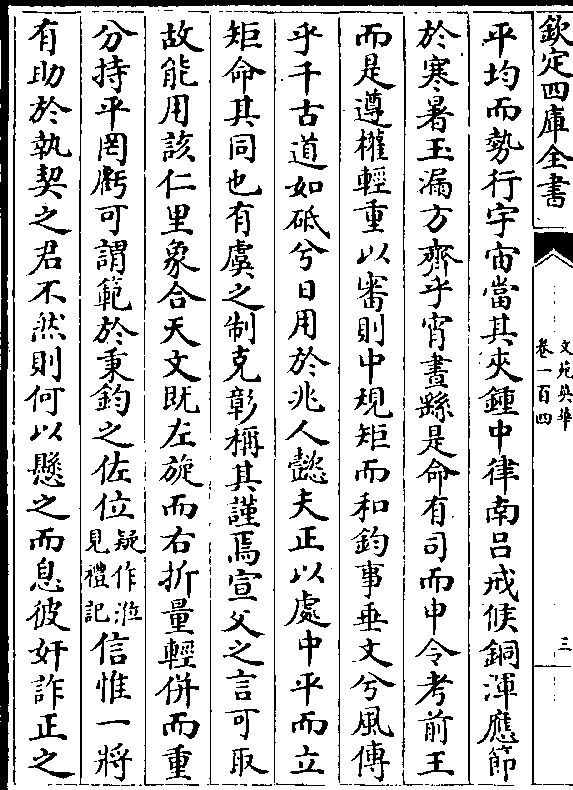 欽定四庫全書
文苑英華
卷一百四
三
平均而勢行宇宙當其夾鍾中律南呂戒候銅渾應節
於寒暑玉漏方齊乎宵晝繇是命有司而申令考前王
而是遵權輕重以審則中規矩而和鈞事垂文兮風傳
乎千古道如砥兮日用於兆人懿夫正以處中平而立
矩命其同也有虞之制克彰稱其謹焉宣父之言可取
故能用該仁里象合天文既左旋而右折量輕併而重
分持平罔虧可謂範於秉鈞之佐位疑作涖見禮記信惟一將
有助於執契之君不然則何以懸之而息彼奸詐正之